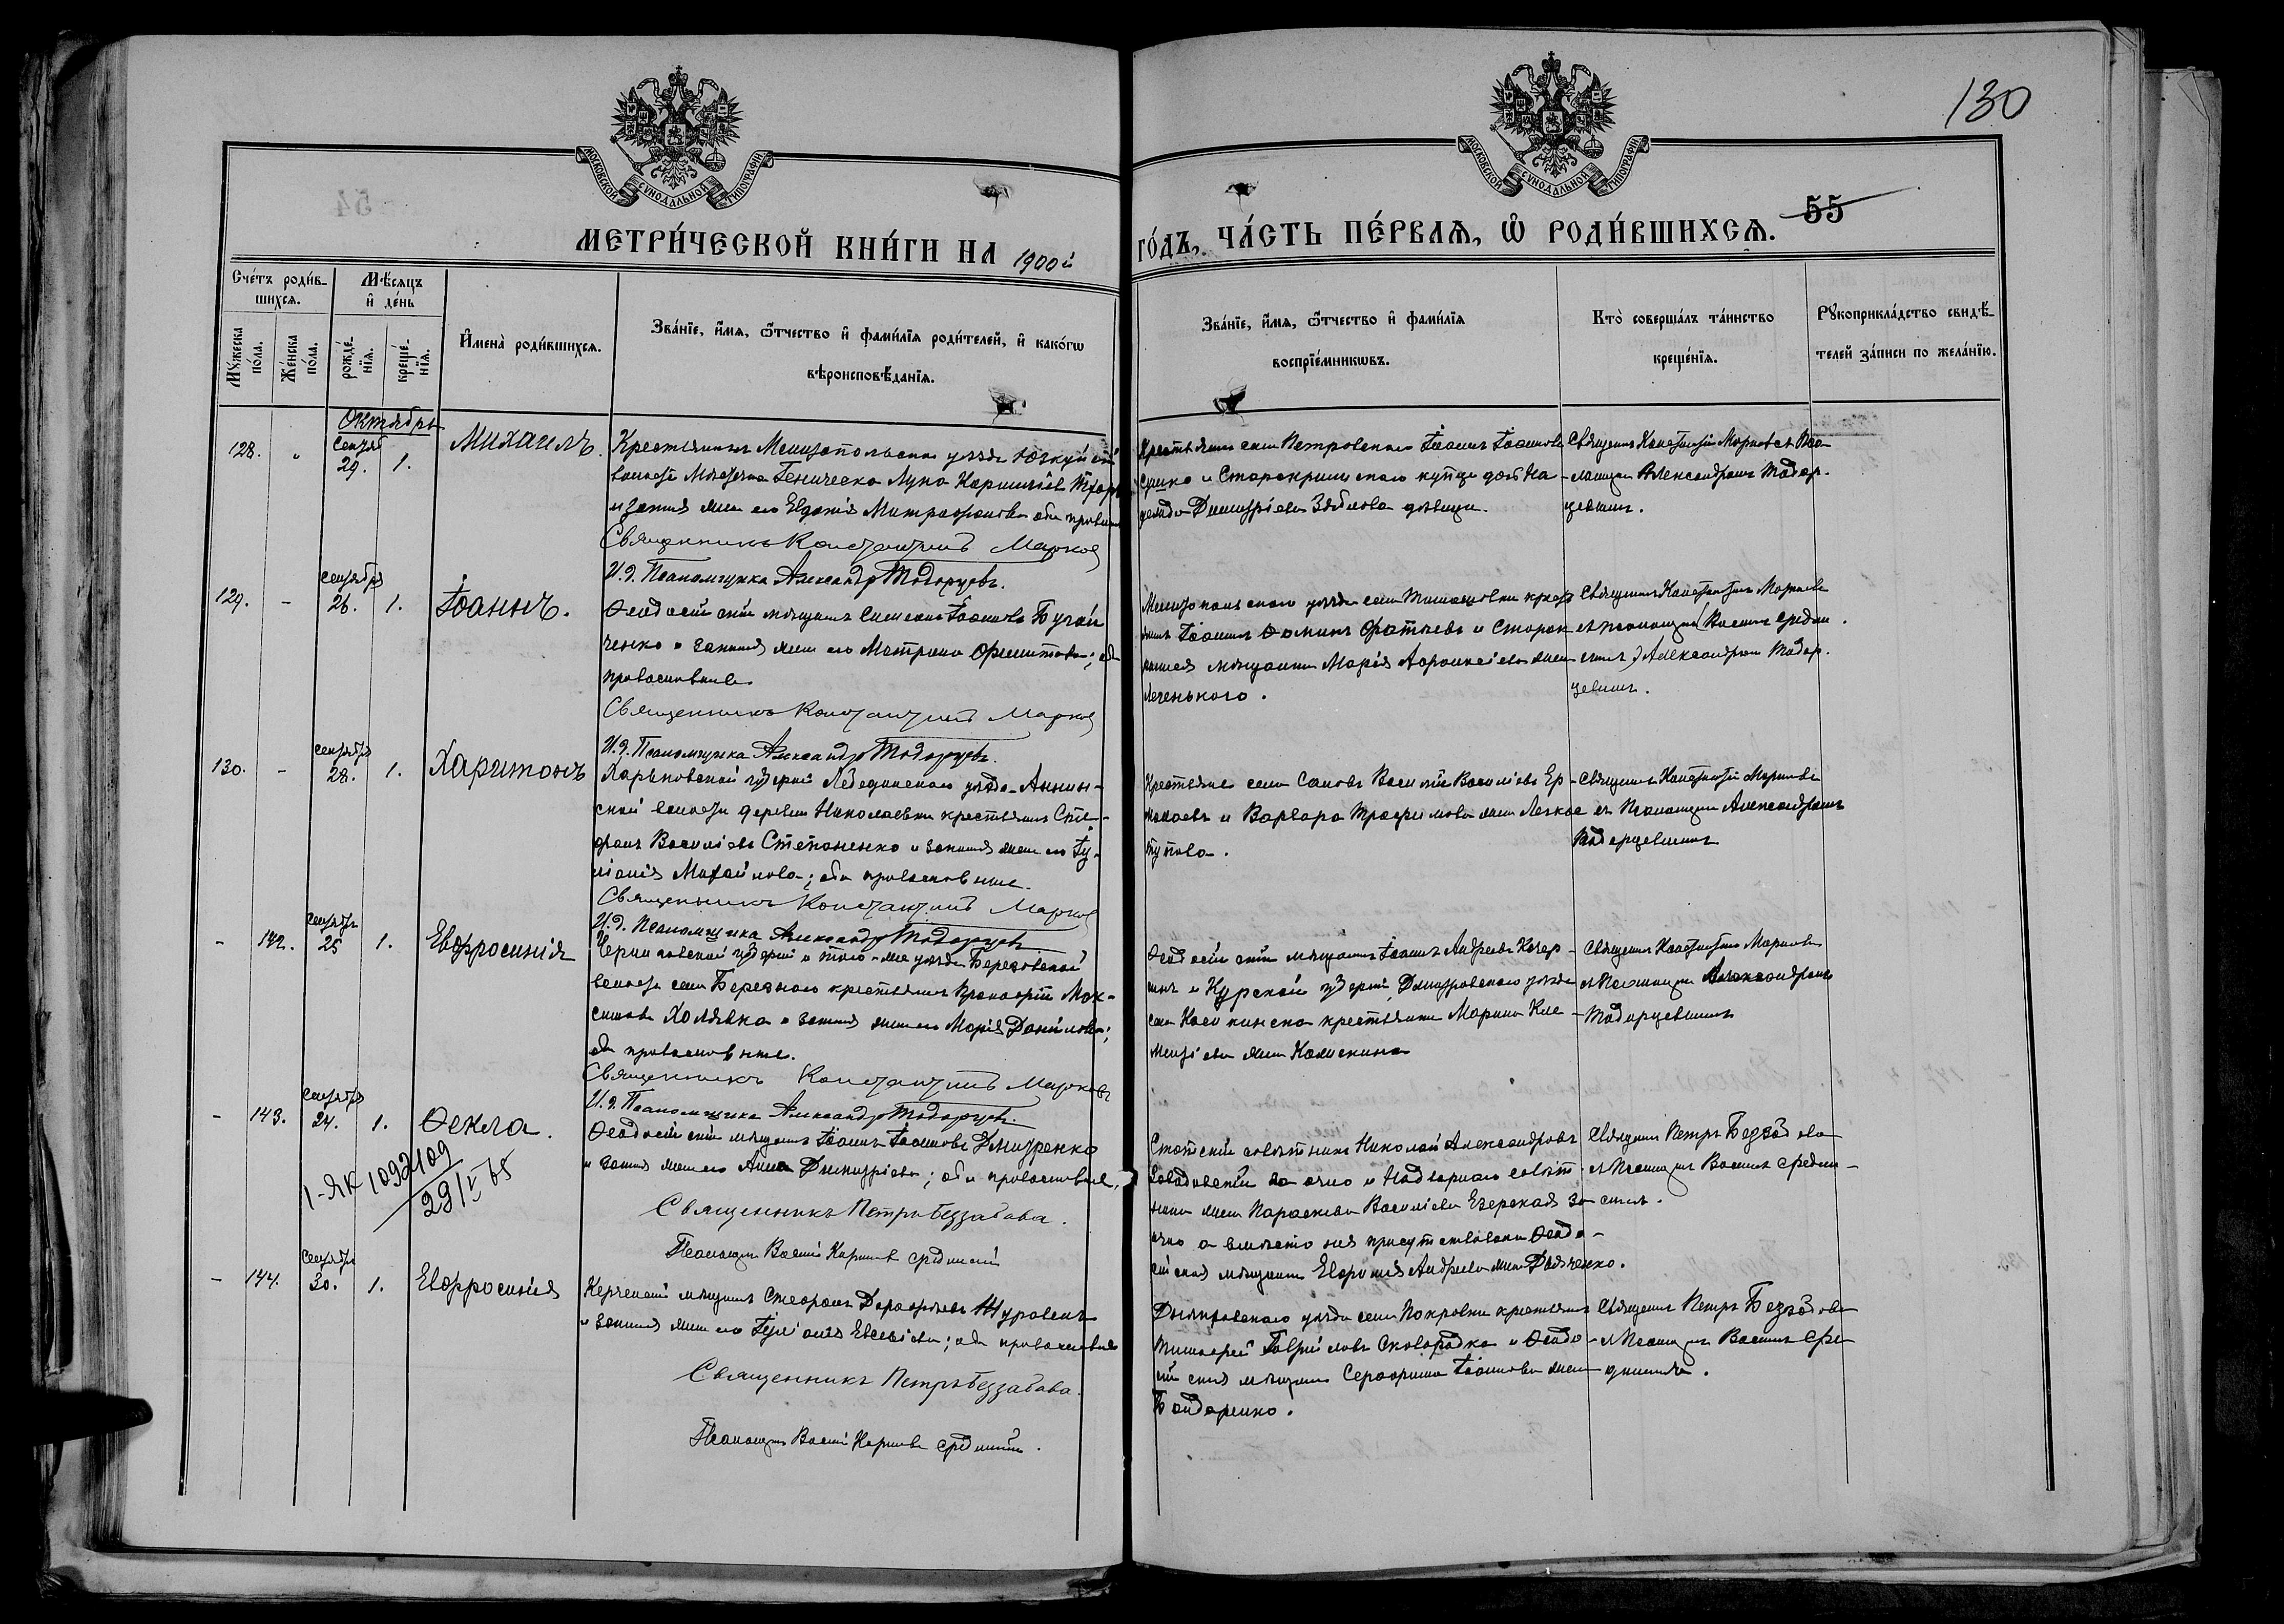 130
МОСКОВСКОЙ СѴНОДАЛЬНОЙ ТИПОГРАФІИ
МОСКОВСКОЙ СѴНОДАЛЬНОЙ ТИПОГРАФІИ
55
МЕТРИ́ЧЕСКОЙ КНИ́ГИ НА 1900й
ГО́ДЪ, ЧА́СТЬ ПЕ́РВАѦ, Ѡ҆ РОДИ́ВШИХСѦ.
Сче́тъ роди́в-
шихсѧ.
Мѣ́сѧцъ
и҆ де́нь
Мꙋ́жеска
по́ла.
Же́нска
по́ла.
рожде́-
нїѧ.
креще́-
нїѧ.
И҆мена̀ роди́вшихсѧ.
Зва́нїе, и҆́мѧ, ѻ҆́тчество и҆ фами́лїѧ роди́телей, и҆ како́гѡ
вѣроисповѣ́данїѧ.
Зва́нїе, и҆́мѧ, ѻ҆́тчество и҆ фами́лїѧ
воспрїе́мникѡвъ.
Кто̀ соверша́лъ та́инство
креще́нїѧ.
Рꙋкоприкла́дство свидѣ́-
телей за́писи по жела́нїю.
Октябрь
128. " Сентяб 29. 1. Михаилъ.
Крестьянинъ Мелитопольскаго уѣзда
волости Мѣстечка Геническа Лука
и законная жена его Евдокія Митрофанова оба правосл
Священникъ Константинъ Марковъ
И.д. Псаломщика Александръ Тодорцевъ.
Крестьянинъ села Петровскаго Іоаннъ Іоанновъ
и Старокрымскаго купца дочь На-
дежда Димитріева Зяблова дѣвица.
Священникъ Константинъ Марковъ съ Пса-
ломщик Александромъ Тодор-
цевымъ.
129. - сентября 26. 1. Іоаннъ.
Ѳеодосійскій мѣщанинъ Симеонъ Іоанновъ
ченко и законная жена его Матрона ; оба
православные.
Священникъ Константинъ Марковъ
И.д. Псаломщика Александръ Тодорцевъ.
Мелитопольскаго уѣзда села Тимошовки крест
Іоаннъ Фоминъ Фатѣевъ и Старок
мѣщанка Марія жена
Леченькаго.
Священникъ Константинъ Марковъ
съ псаломщик (Васил Средин
) Александромъ Тодор-
цевымъ.
130. - сентября 28. 1. Харитонъ
Харьковской губерніи Лебединскаго уѣзда Аннин-
ской волости деревни Николаевки крестьянинъ Сте-
фанъ Василіевъ Степаненко и законная жена его Іу-
ліанія Михайлова; оба православные.
Священникъ Константинъ Марковъ
И.д. Псаломщика Александръ Тодорцевъ
Крестьяне села Василій Василіевъ Ер-
маковъ и Варвара Трофимова жена
Священникъ Константинъ Марковъ
съ Псаломщик Александромъ
Тодорцевымъ
- 142. Сентябр 25 1. Евфросинія
Черниговской губерніи и того-же уѣзда Березовской
волости села Березнаго крестьянинъ Прокофій Мак-
симовъ Холявка и законная жена его Марія Данилова;
оба православные.
Священникъ Константинъ Марковъ
И.д. Псаломщика Александръ Тодорцевъ.
Ѳеодосійскій мѣщанинъ Іоаннъ Андреевъ Качер-
инъ и Курской губерніи, Дмитровскаго уѣзда
села крестьянка Марина Кле-
ментіева жена
Священникъ Константинъ Марковъ
съ Псаломщик Александромъ
Тодорцевымъ
- 143. Сентября 24. 1. Ѳекла.
Ѳеодосійскій мѣщанинъ Іоаннъ Іоанновъ Дмитренко
и законная жена его Анна Димитріева; оба православные.
Священникъ Петръ Беззабава.
Псаломщикъ Василій Карповъ Срединскій
Статскій совѣтникъ Николай Александровъ
заочно и Надворнаго совѣт-
ника жена Параскева Василіева Езерская за-
очно а вмѣсто нея присутствовала Ѳеодо-
сійская мѣщанка Евфимія Андреева жена Дьяченко.
Священникъ Петръ Беззабава
съ Псаломщик Василіемъ Средин-
скимъ.
1-ЯК 1092409
29/V 65
- 144. Сентября 30. 1. Евфросинія
Керченскій мѣщанинъ Стефанъ Дорофеевъ Журавель
и законная жена его Іуліанія Евсевіева; оба православные
Священникъ Петръ Беззабава.
Псаломщикъ Василій Карповъ Срединскій.
Днѣпровскаго уѣзда села Покровки крестьянинъ
Тимофей Гавриловъ Сковородка и Ѳеодо-
сійская мѣщанка Серафима Іоаннова жена
Бондаренко.
Священникъ Петръ Беззабава
съ Псаломщик Василіемъ Сре-
динскимъ.